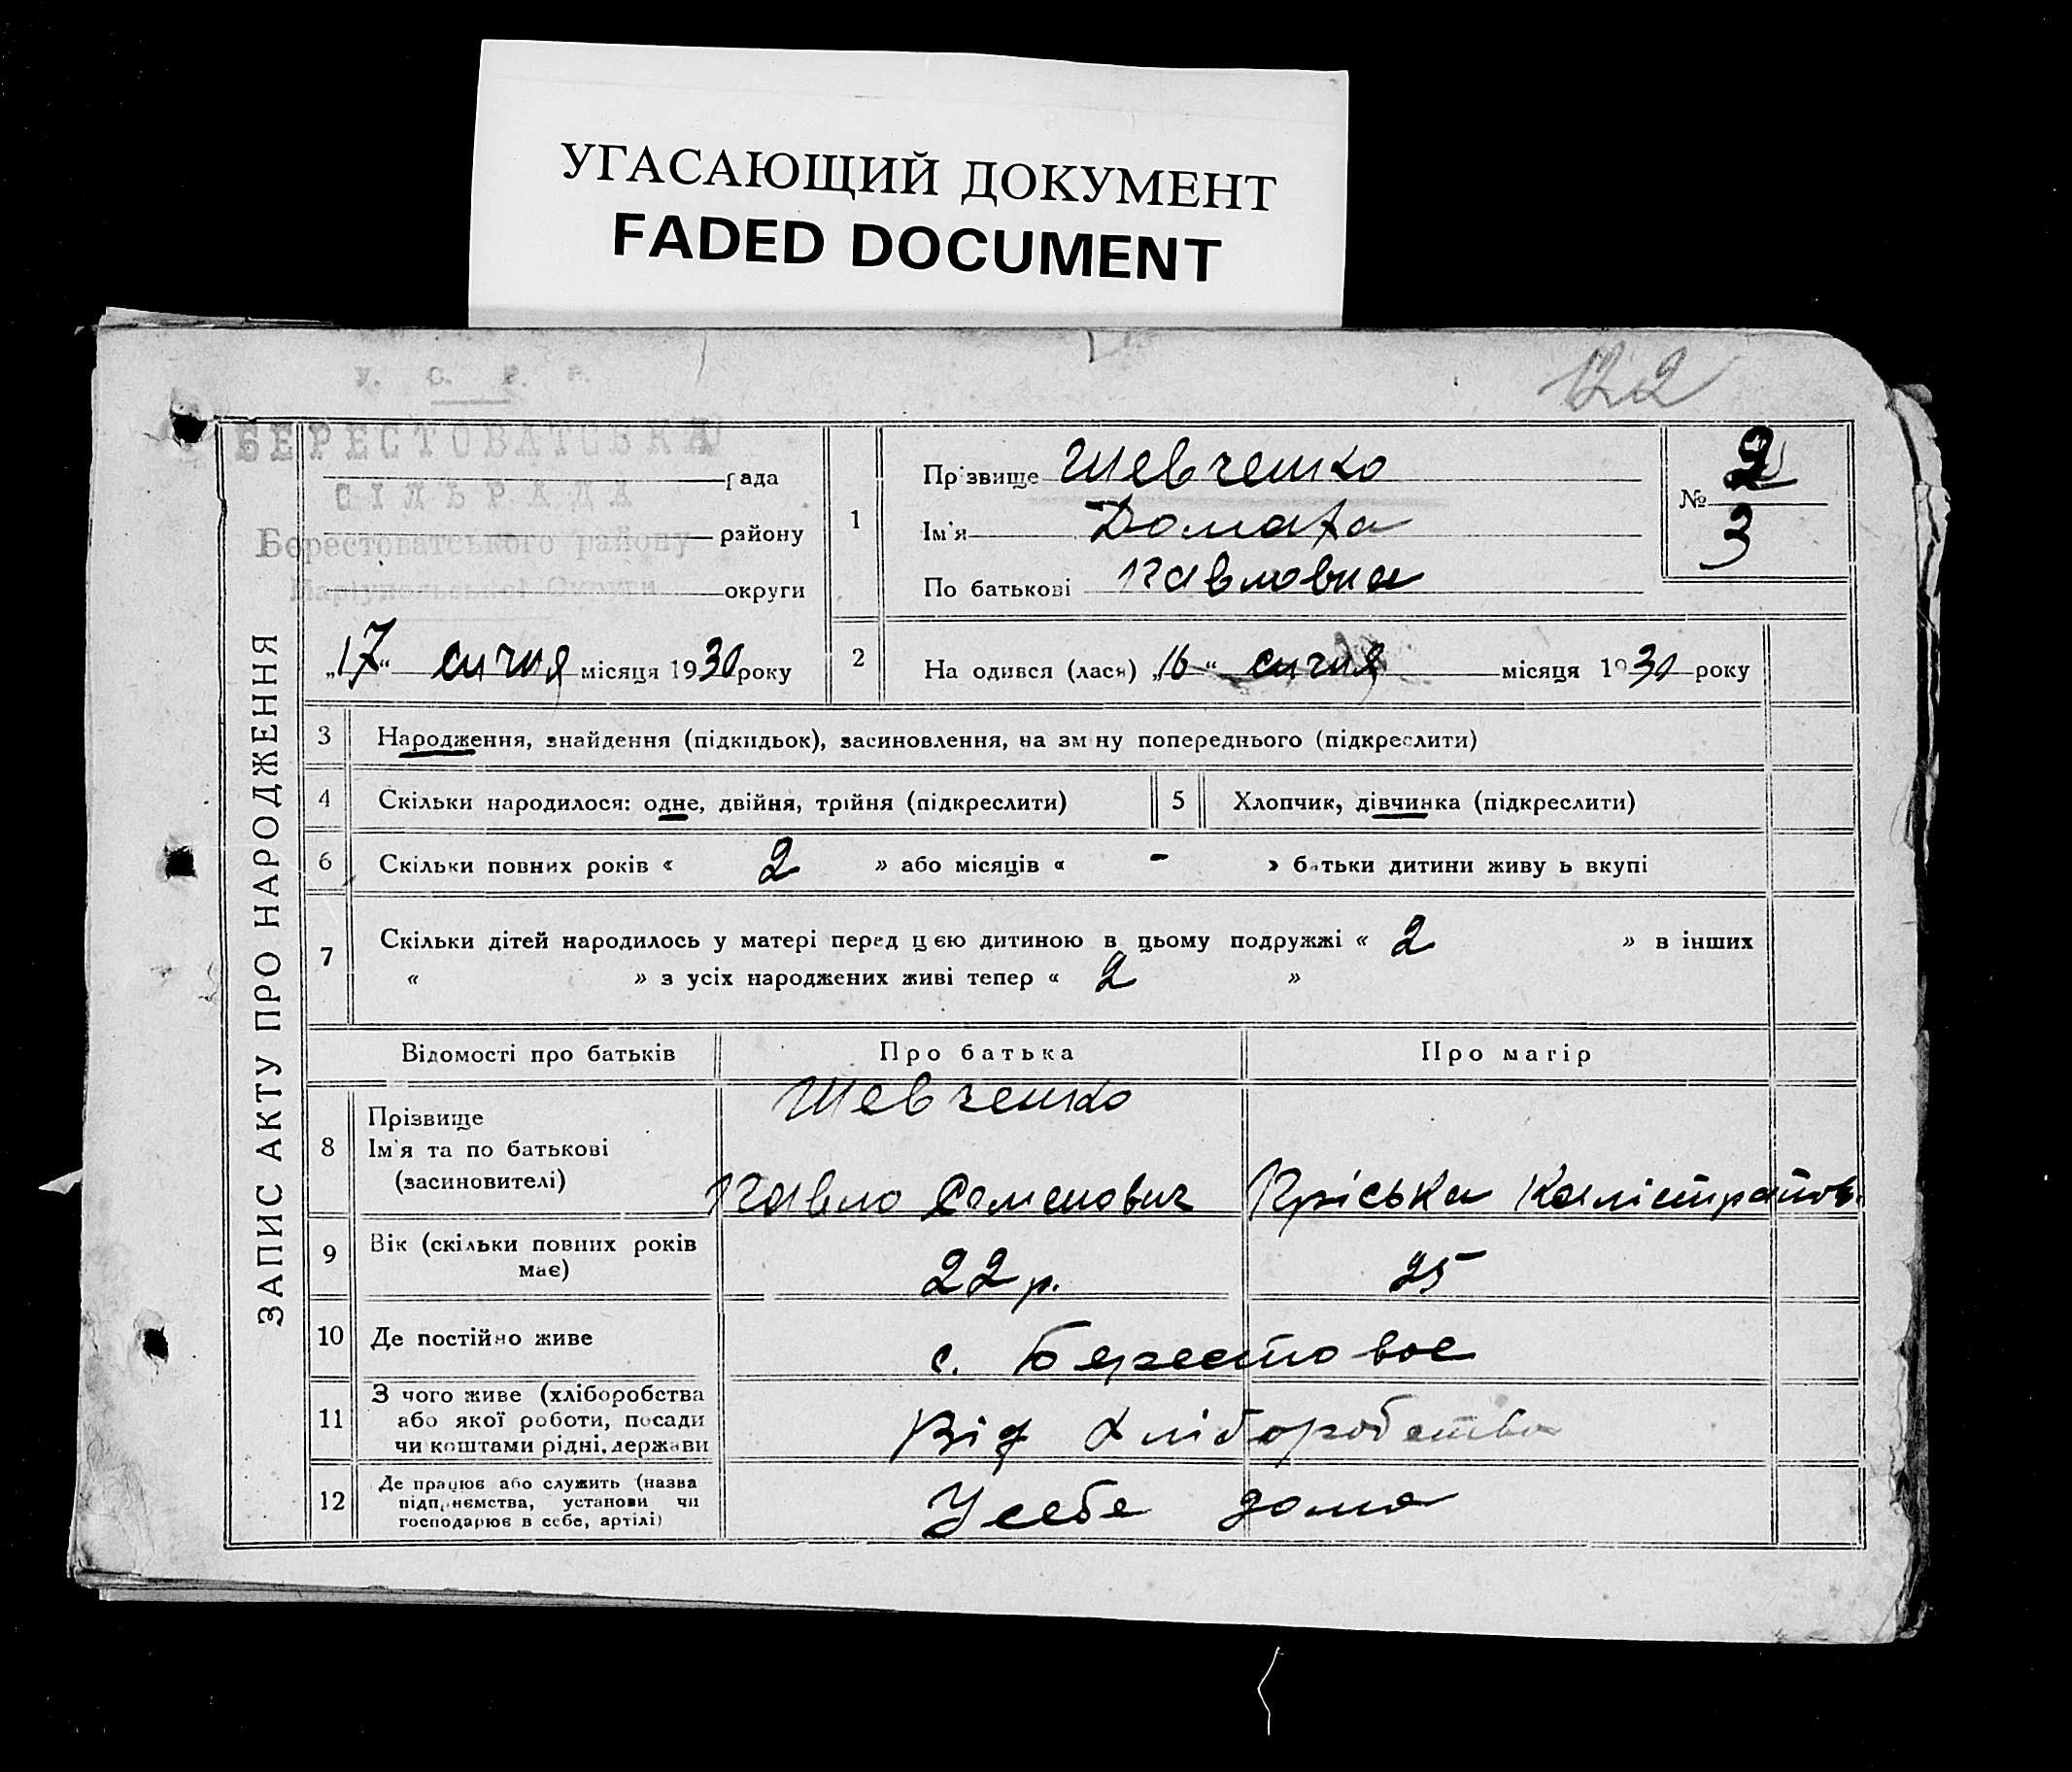 УГАСАЮЩИЙ ДОКУМЕНТ
FADED DOCUMENT
У. С. Р. Р.
122
БЕРЕСТОВАТСЬКА
рада
СІЛЬРАДА
Берестоватського району району
Маріупольської Округи округи
„17“ січня місяця 1930 року
ЗАПИС АКТУ ПРО НАРОДЖЕННЯ
1 Прізвище Шевченко
Ім'я Домаха
По батькові Павловна
№ 2
3
2 На одився (лася) „16“ січня місяця 1930 року
3 Народження, знайдення (підкидьок), засиновлення, на зміну попереднього (підкреслити)
4 Скільки народилося: одне, двійня, трійня (підкреслити) 5 Хлопчик, дівчинка (підкреслити)
6 Скільки повних років « 2 » або місяців « - » батьки дитини живу ь вкупі
7 Скільки дітей народилось у матері перед цією дитиною в цьому подружжі « 2 » в інших
« » з усіх народжених живі тепер « 2 »
Відомості про батьків Про батька Про матір
8 Прізвище Шевченко
Ім'я та по батькові
(засиновителі) Павло Семенович Пріська Калістратов.
9 Вік (скільки повних років має) 22 р. 25
10 Де постійно живе с. Берестовое
11 З чого живе (хліборобства
або якої роботи, посади
чи коштами рідні, держави Від хліборобства
12 Де працює або служить (назва
підприємства, установи чи
господарює в себе, артілі) У себе дома